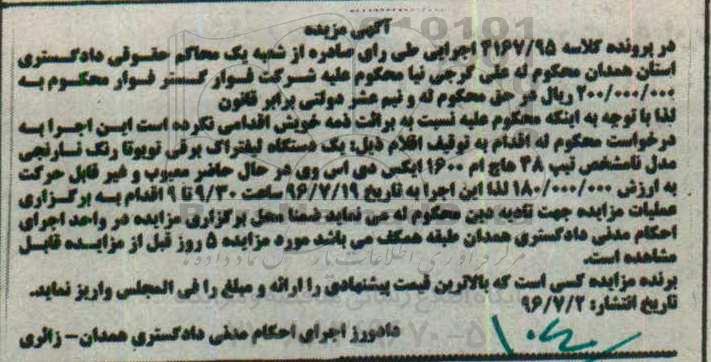 آگهی مزایده
در پرونده کلاسه ۳۱۶۷/۹۵ اجرایی طی رای صادره از شعبه یک محاکم حقوقی دادگستری
استان همدان محکوم له علی گرجی نیا محکوم علیه شرکت فوار گستر فوار محکوم به
۲۰۰/۰۰۰/۰۰۰ ریال در حق محکوم له و نیم عشر دولتی برابر قانون
لذا با توجه به اینکه محکوم علیه نسبت به برائت ذمه خویش اقدامی نکرده است این اجرا به
درخواست محکوم له اقدام به توقیف اقلام ذیل: یک دستگاه لیفتراک برقی تویوتا رنگ نارنجی
مدل نامشخص تیپ ۳۸ هاچ ام ۱۶۰۰ ایکس دی اس وی در حال حاضر معیوب و غیر قابل حرکت
به ارزش ۱۸۰/۰۰۰/۰۰۰ لذا این اجرا به تاریخ ۹۶/۷/۱۹ ساعت ۹/۳۰ تا ۹ اقدام به برگزاری
عملیات مزایده جهت تادیه دین محکوم له می نماید ضمنا محل برگزاری مزایده در واحد اجرای
احکام مدنی دادگستری همدان طبقه همکف می باشد مورد مزایده ۵ روز قبل از مزایده قابل
مشاهده است.
برنده مزایده کسی است که بالاترین قیمت پیشنهادی را ارائه و مبلغ را فی المجلس واریز نماید.
تاریخ انتشار: ۹۶/۷/۲
دادورز اجرای احکام مدنی دادگستری همدان- زائری